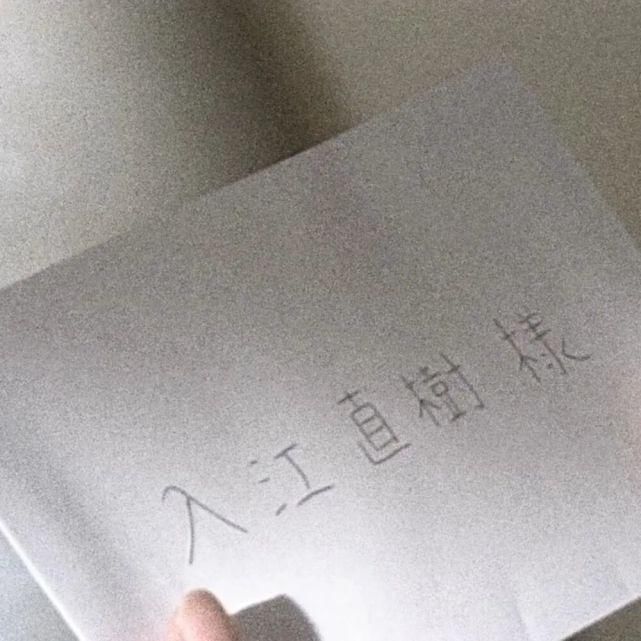 入江直樹様